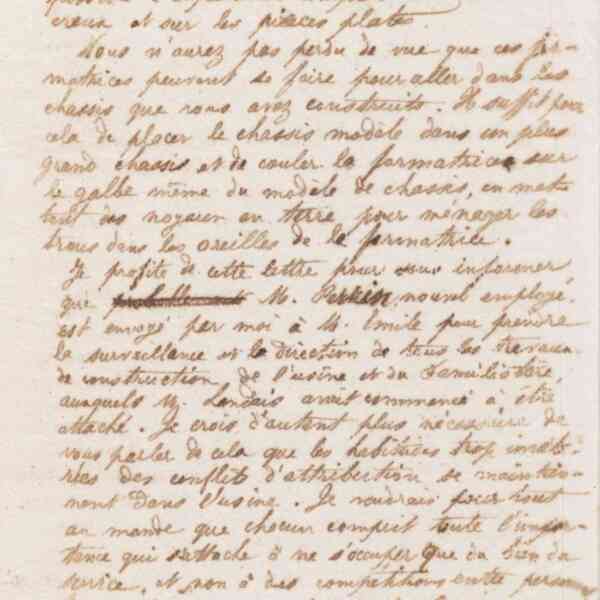 creux et sur les pièces plates.
Vous n'aurez pas perdu de vue que ces for-
matrices peuvent se faire pour aller dans les
chassis que vous avez construits. Il suffit pour
cela de placer le chassis modèle dans un plus
grand chassis et de couler la formatrice sur
le galbe même du modèle de chassis, en met-
tant des noyaux en terre pour ménager les
trous dans les oreilles de la formatrice.
Je profite de cette lettre pour vous informer
que probablement M. Perkin, nouvel employé,
est envoyé par moi à M. Emile pour prendre
la surveillance et la direction de tous les travaux
de construction de l'usine et du Familistère,
auxquels M. Landais avait commencé à être
attaché. Je crois d'autant plus nécessaire de
vous parler de cela que les habitudes trop invété-
rées des conflits d'attribution se maintien-
nent dans l'usine. Je voudrais pour tout
au monde que chacun comprit toute l'impor-
tance qui s'attache à ne s'occuper que du bien du
service, et non à des compétitions entre person